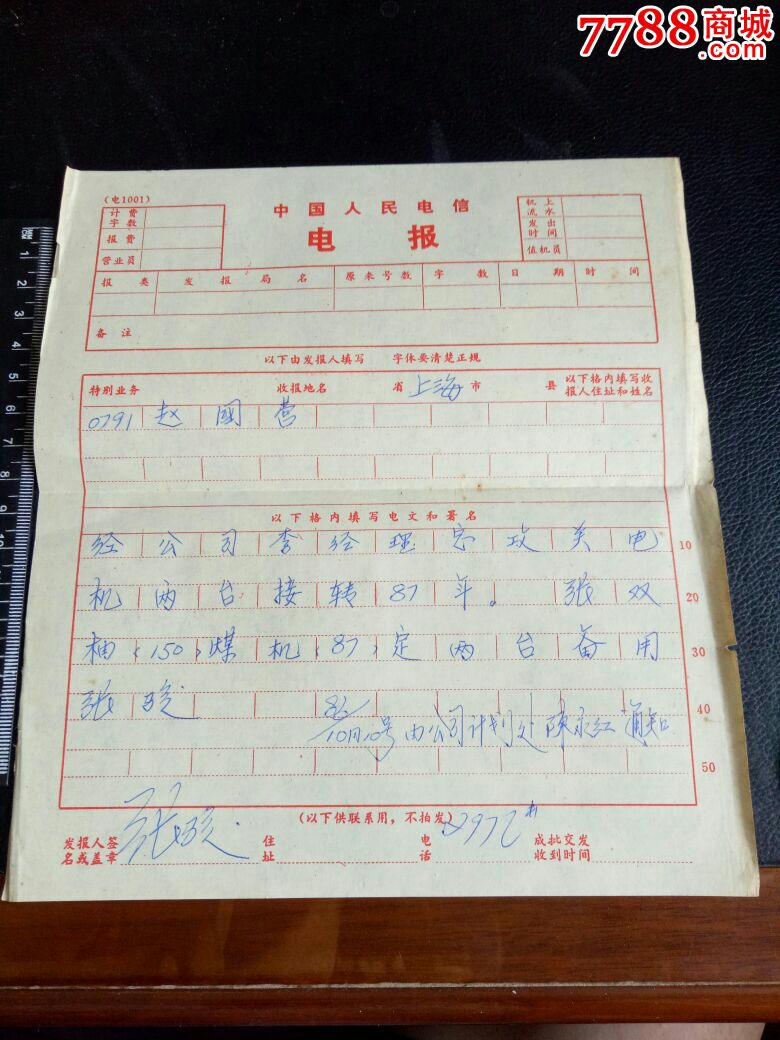 7788商城
.com
(电1001)
中国人民电信
电 报
计费字数
报费
营业员
机上流水
发出时间
值机员
报类 发报局名 原来号数 字数 日期 时间
备注
以下由发报人填写 字体要清楚正规
特别业务 收报地名 省 上海 市 县 以下格内填写收报人住址和姓名
0791 赵 國 营
以下格内填写电文和署名
经公司李经理 攻关电 10
机两台接转87年。 张双 20
柚(150)煤机(87)定两台备用 30
张骏 40
86/10月10号由公司计划处陈永红通知
50
(以下供联系用,不拍发)
发报人签名或盖章 张骏 住址 电话 成批交发收到时间
8
7
6
5
4
3
2
10
9
8
7